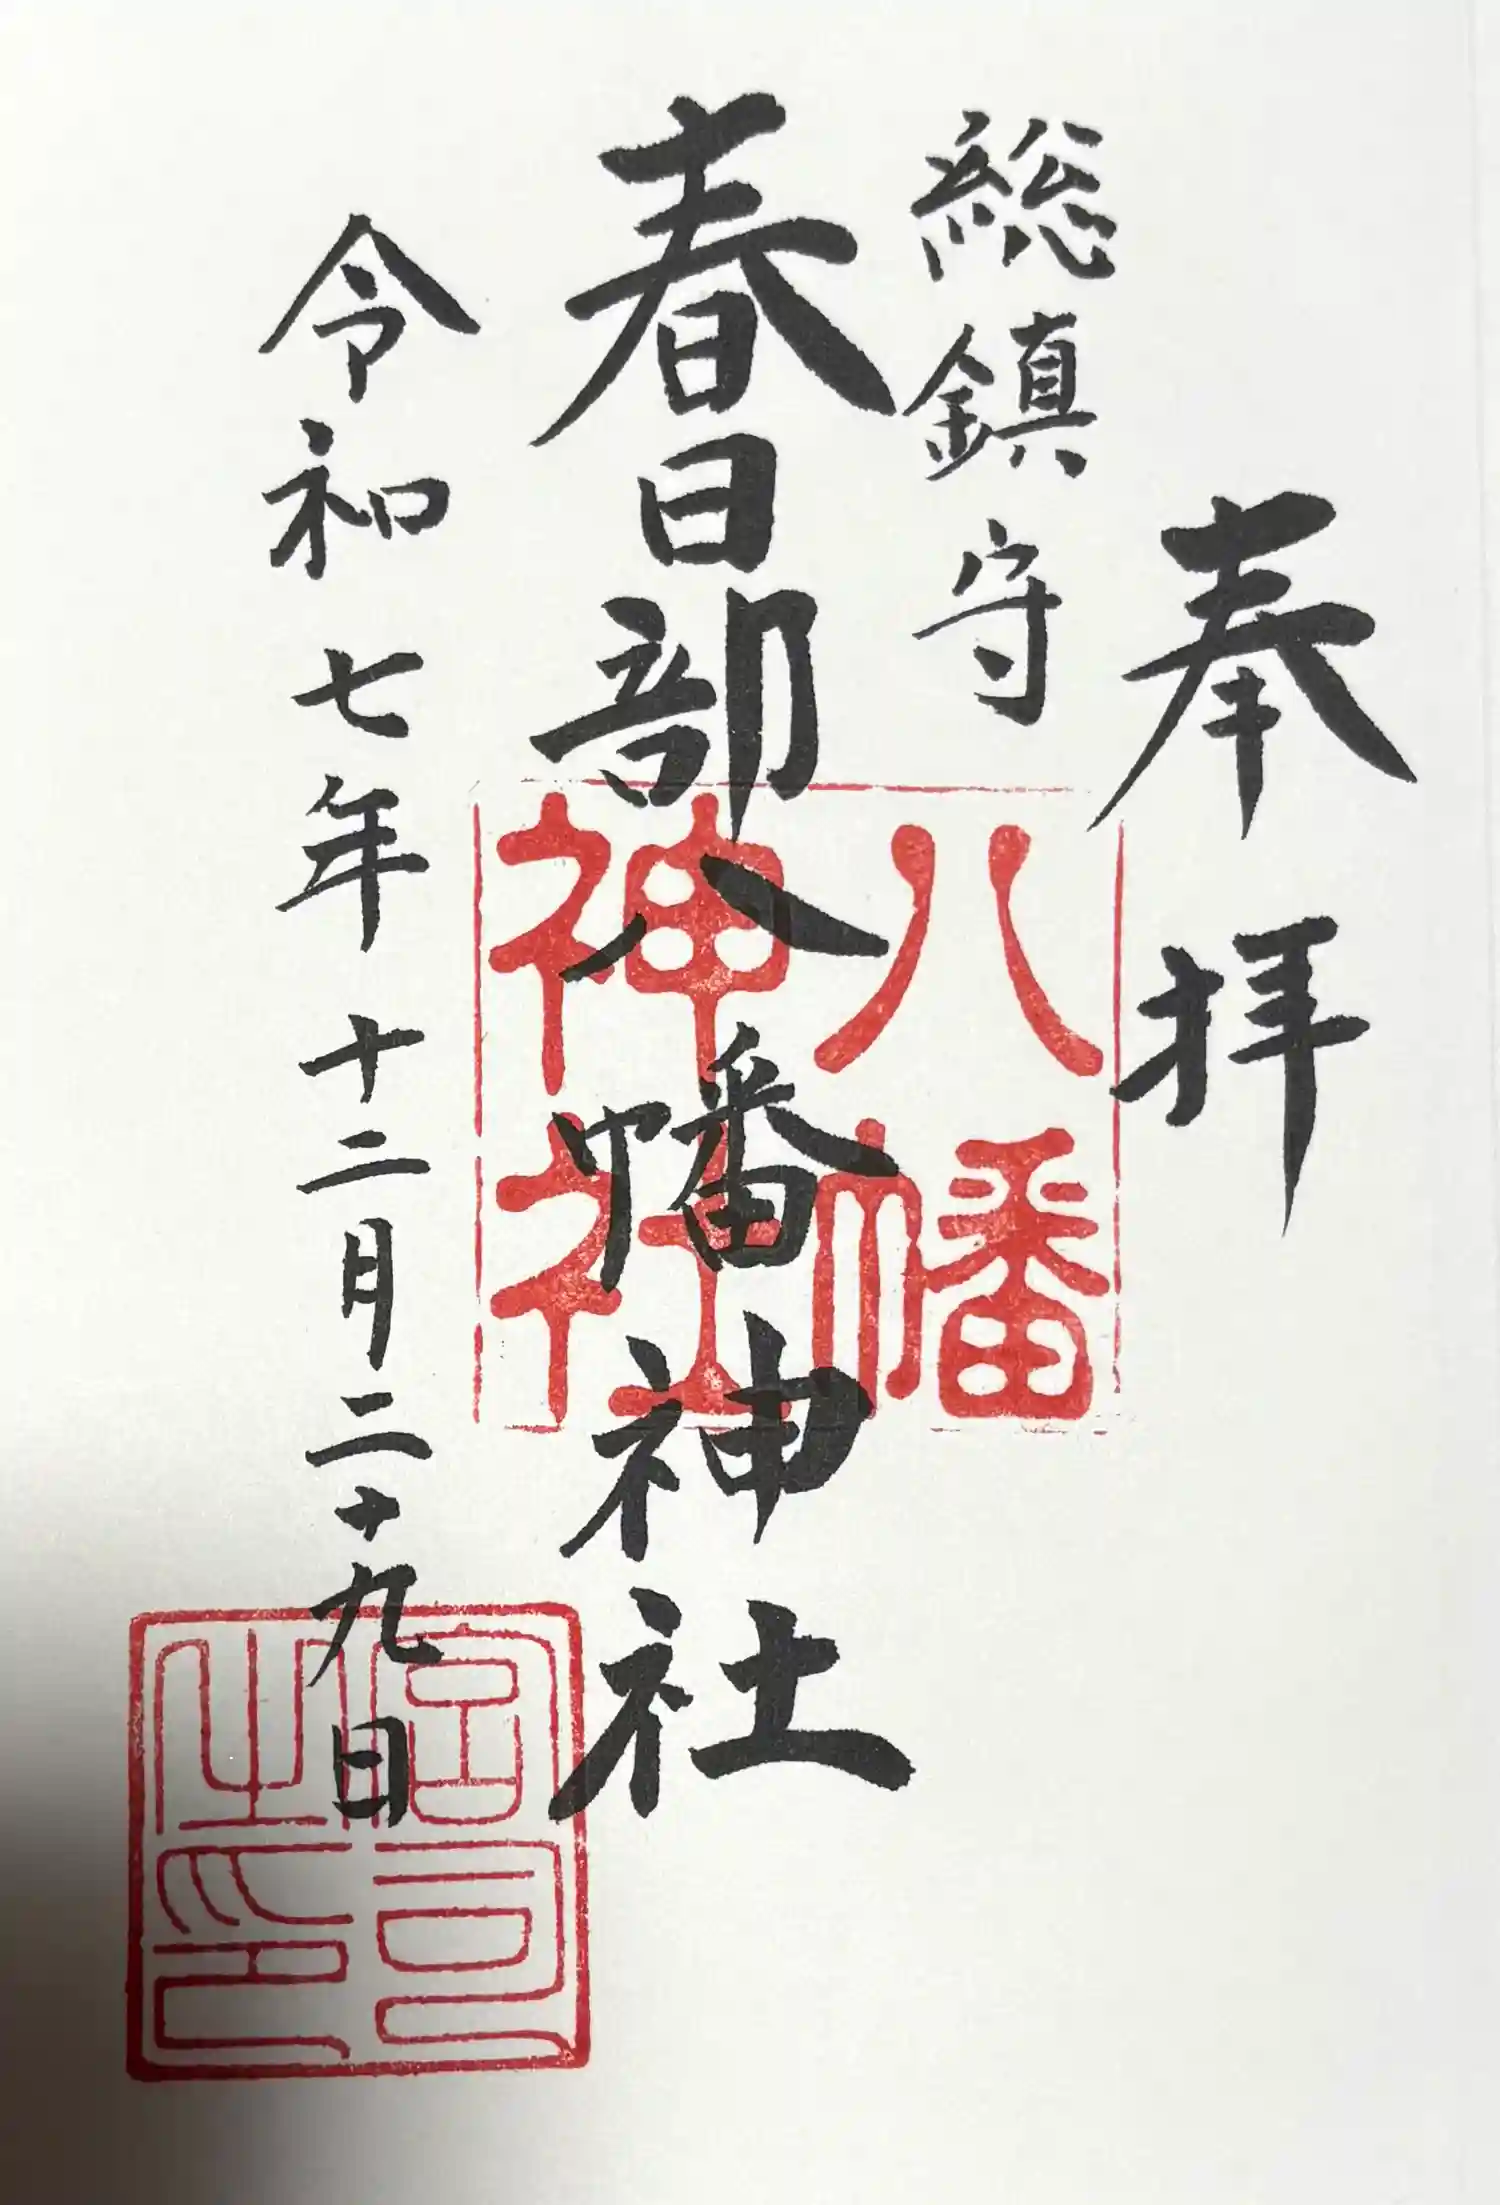 奉拝
総鎮守
春日部八幡神社
令和七年十二月二十九日
八幡
神社
宮司
之印